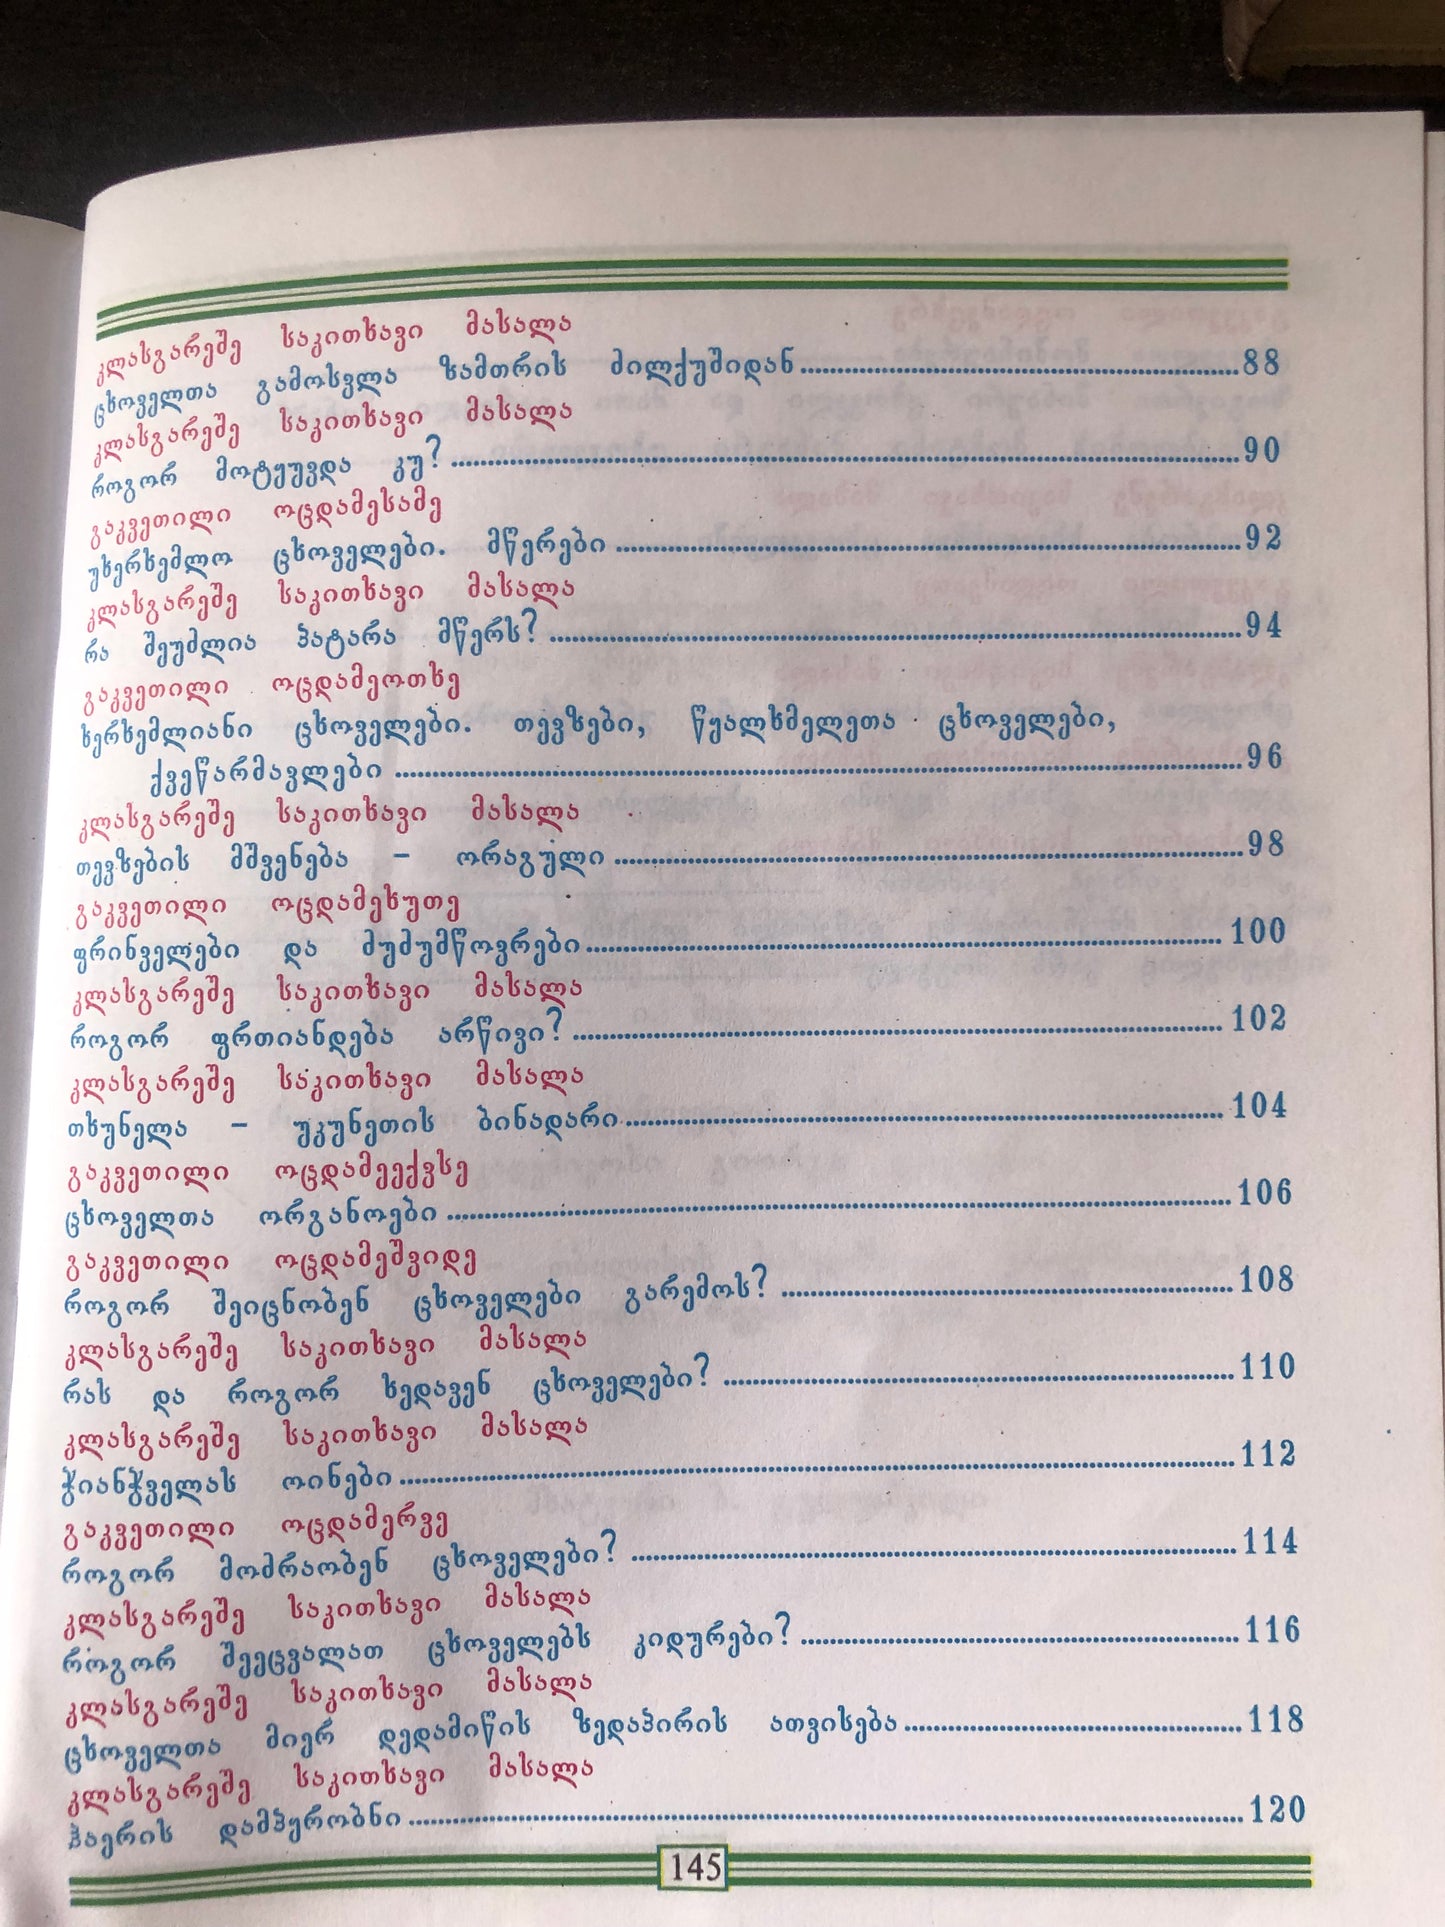 კლასგარეშე საკითხავი მასალა
ცხოველთა გამოსვლა ზამთრის ძილქუშიდან 88
კლასგარეშე საკითხავი მასალა
როგორ მოტყუვდა კუ? 90
გაკვეთილი ოცდამესამე
უხერხემლო ცხოველები. მწერები 92
კლასგარეშე საკითხავი მასალა
რა შეუძლია პატარა მწერს? 94
გაკვეთილი ოცდამეოთხე
ხერხემლიანი ცხოველები. თევზები, წყალხმელეთა ცხოველები,
ქვეწარმავლები 96
კლასგარეშე საკითხავი მასალა
თევზების მშვენება – ორაგული 98
გაკვეთილი ოცდამეხუთე
ფრინველები და ძუძუმწოვრები 100
კლასგარეშე საკითხავი მასალა
როგორ ფრთიანდება არწივი? 102
კლასგარეშე საკითხავი მასალა
თხუნელა – უკუნეთის ბინადარი 104
გაკვეთილი ოცდამეექვსე
ცხოველთა ორგანოები 106
გაკვეთილი ოცდამეშვიდე
როგორ შეიცნობენ ცხოველები გარემოს? 108
კლასგარეშე საკითხავი მასალა
რას და როგორ ხედავენ ცხოველები? 110
კლასგარეშე საკითხავი მასალა
ჭიანჭველას ოინები 112
გაკვეთილი ოცდამერვე
როგორ მოძრაობენ ცხოველები? 114
კლასგარეშე საკითხავი მასალა
როგორ შეეცვალათ ცხოველებს კიდურები? 116
კლასგარეშე საკითხავი მასალა
ცხოველთა მიერ დედამიწის ზედაპირის ათვისება 118
კლასგარეშე საკითხავი მასალა
ჰაერის დამპყრობნი 120
145